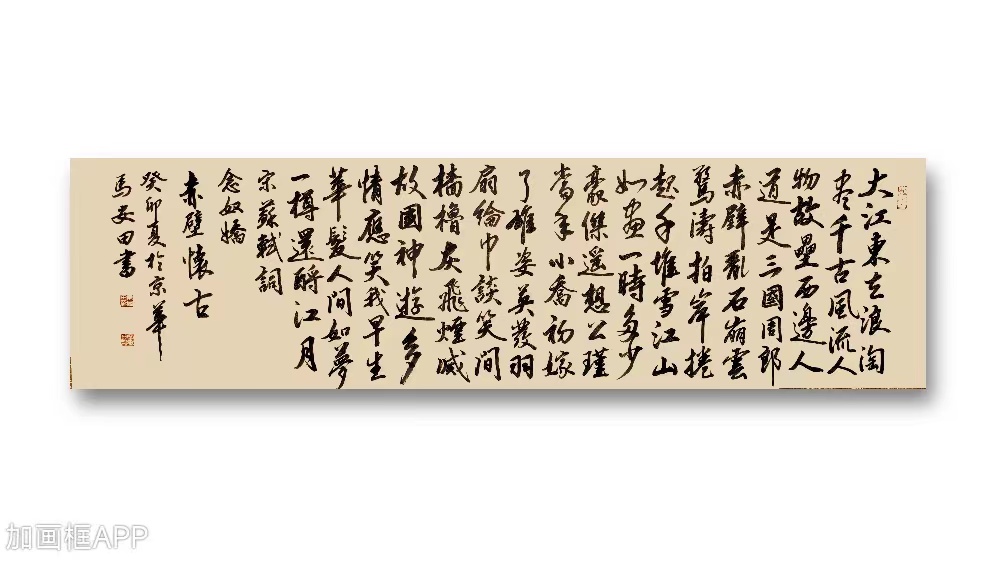 大江東去浪淘
尽千古風流人
物故壘西邊人
道是三國周郎
赤壁亂石崩雲
驚濤拍岸捲
起千堆雪江山
如畫一時多少
豪傑遥想公瑾
當年小喬初嫁
了雄姿英發羽
扇綸巾談笑間
檣櫓灰飛煙滅
故國神遊多
情應笑我早生
華髮人間如夢
一樽還酹江月
宋蘇軾詞
念奴嬌
赤壁懷古
癸卯夏於京華
馬安田書
加画框APP